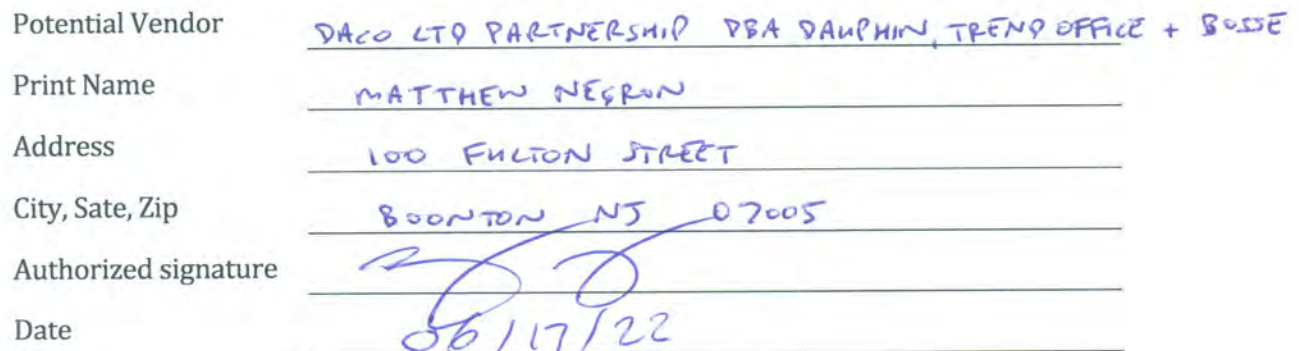 Potential Vendor DACO LTD PARTNERSHIP DBA DAUPHIN, TREND OFFICE + BOSSE
Print Name MATTHEW NEGRON
Address 100 FULTON STREET
City, Sate, Zip BOONTON NJ 07005
Authorized signature
Date 06/17/22